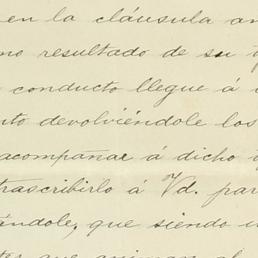 en la cláusula an
mo resultado de su
conducto llegue á
nto devolviéndole los
acompañar á dicho
trascribirlo á Vd. par
éndole, que siendo
tes que animan al